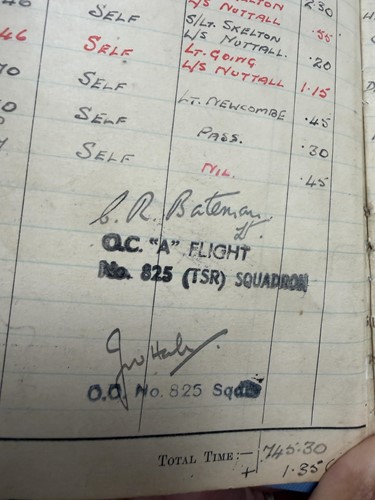 L/S NUTTALL 2.30
S/LT. SKELTON
SELF L/S NUTTALL. .55
46 SELF LT. GOING .20
L/S NUTTALL 1.15
70 SELF
LT. NEWCOMBE .45
SELF
PASS. .30
SELF
NIL. .45
C. R. Bateman.
Lt.
O.C. "A" FLIGHT
No. 825 (TSR) SQUADRON
C.O. No. 825 Sqdn
TOTAL TIME:— 745.30
+ 1.35